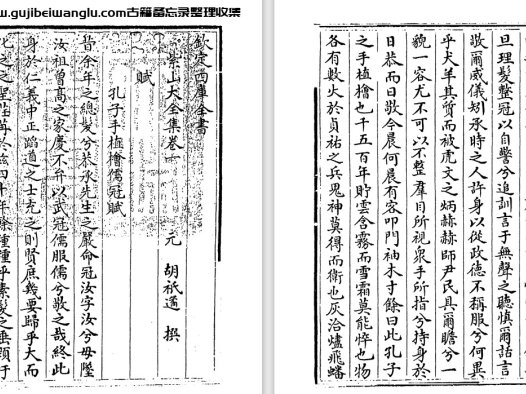 www.gujibeiwanglu.com古籍备忘录整理收集
欽定四庫全書
紫山大全集卷一
元 胡祗遹 撰
賦
孔子手植檜儒冠賦
昔余年之總髮兮恭承先生之嚴命冠汝字汝兮毋墜
汝祖曾高之家慶不弁以武冠儒服儒兮敬之哉終此
身於仁義中正蹈道之士充之則賢庶幾要歸乎大而
化之之聖苒於茲四十年種種乎素髮之垂領于
旦理髮整冠以自警兮追訓言于無聲之聽慎爾話言
敬爾威儀矧承時之人許身以從政德不稱服兮何異
乎犬羊其質而被虎文之炳赫赫師尹民具爾瞻兮一
貌一容尤不可以不整羣目所視衆手所指兮持身於
日恭而日敬今晨何晨有客叩門袖木寸餘曰此孔子
之手植檜也千五百年貯雲含霧而雪霜莫能悴也物
各有數火於貞祐之兵鬼神莫得而衛也灰冶爐飛蟠